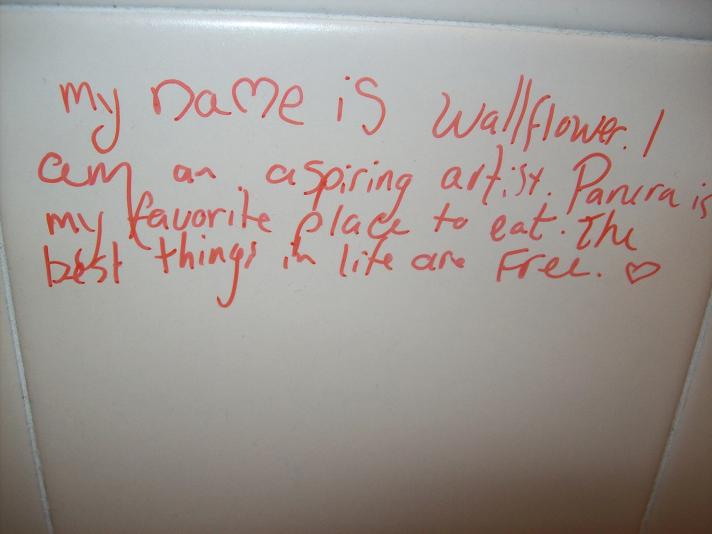 my name is wallflower. I
am an aspiring artist. Panera is
my favorite place to eat. The
best things in life are Free. ♡